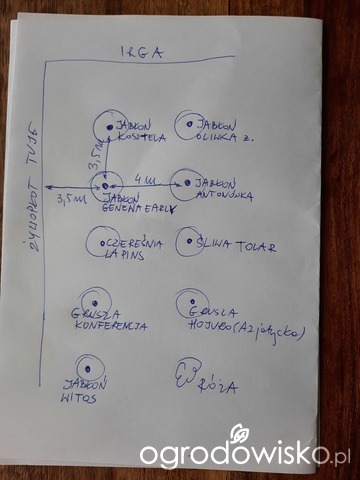 IRGA
ŻYWOPŁOT TUJE
JABŁOŃ
KOSZTELA
JABŁOŃ
OLIWKA Ż.
3,5m
4m
3,5m
JABŁOŃ
GENEWA EARLY
JABŁOŃ
ANTONÓWKA
CZEREŚNIA
LAPINS
ŚLIWA TOLAR
GRUSZA
KONFERENCJA
GRUSZA
HOJURO (AZJATYCKA)
JABŁOŃ
WITOS
RÓŻA
ogrodowisko.pl